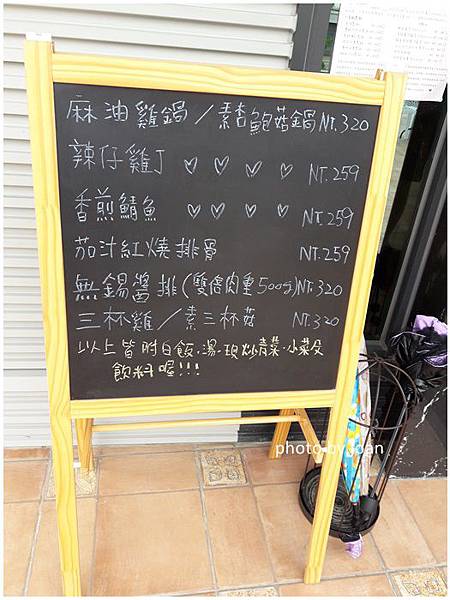 麻油雞鍋／素杏鮑菇鍋NT.320
辣仔雞丁 ♡ ♡ ♡ ♡ NT.259
香煎鯖魚 ♡ ♡ ♡ ♡ NT.259
茄汁紅燒排骨 NT.259
無錫醬排(雙倍肉量500g)NT.320
三杯雞／素三杯菇 NT.320
以上皆附白飯.湯.現炒青菜.小菜及
飲料喔!!!
photo by joan